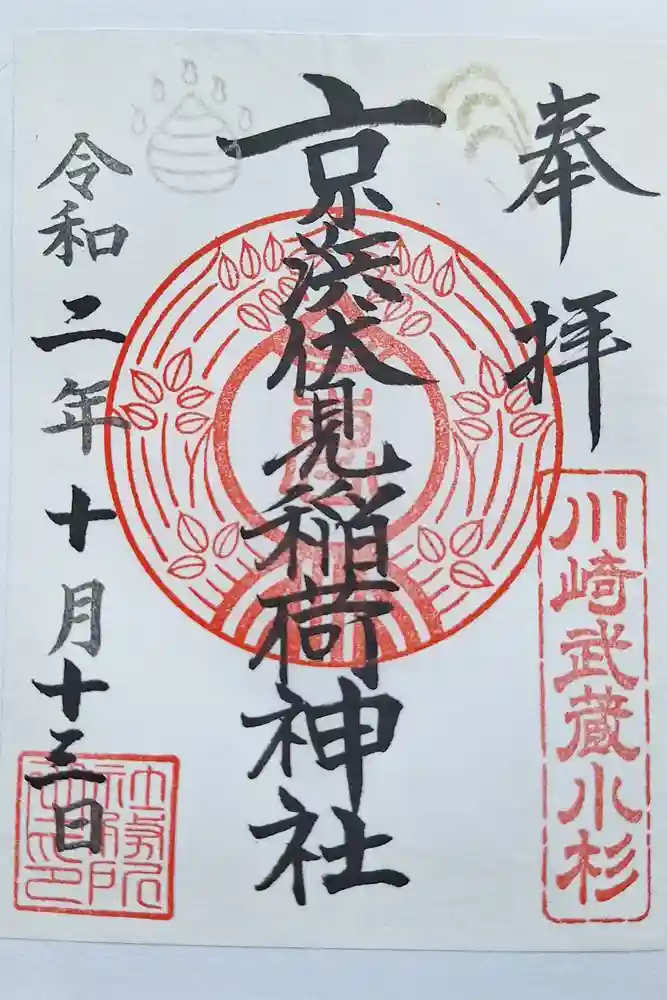 奉拝
川崎武蔵小杉
京浜伏見稲荷神社
令和二年十月十三日